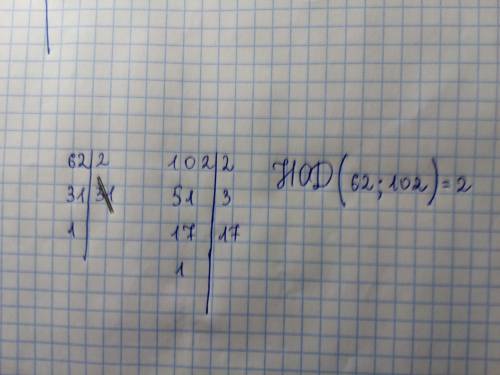 62|2
31|31
1|
102|2
51|3
17|17
1|
НОД(62;102)=2